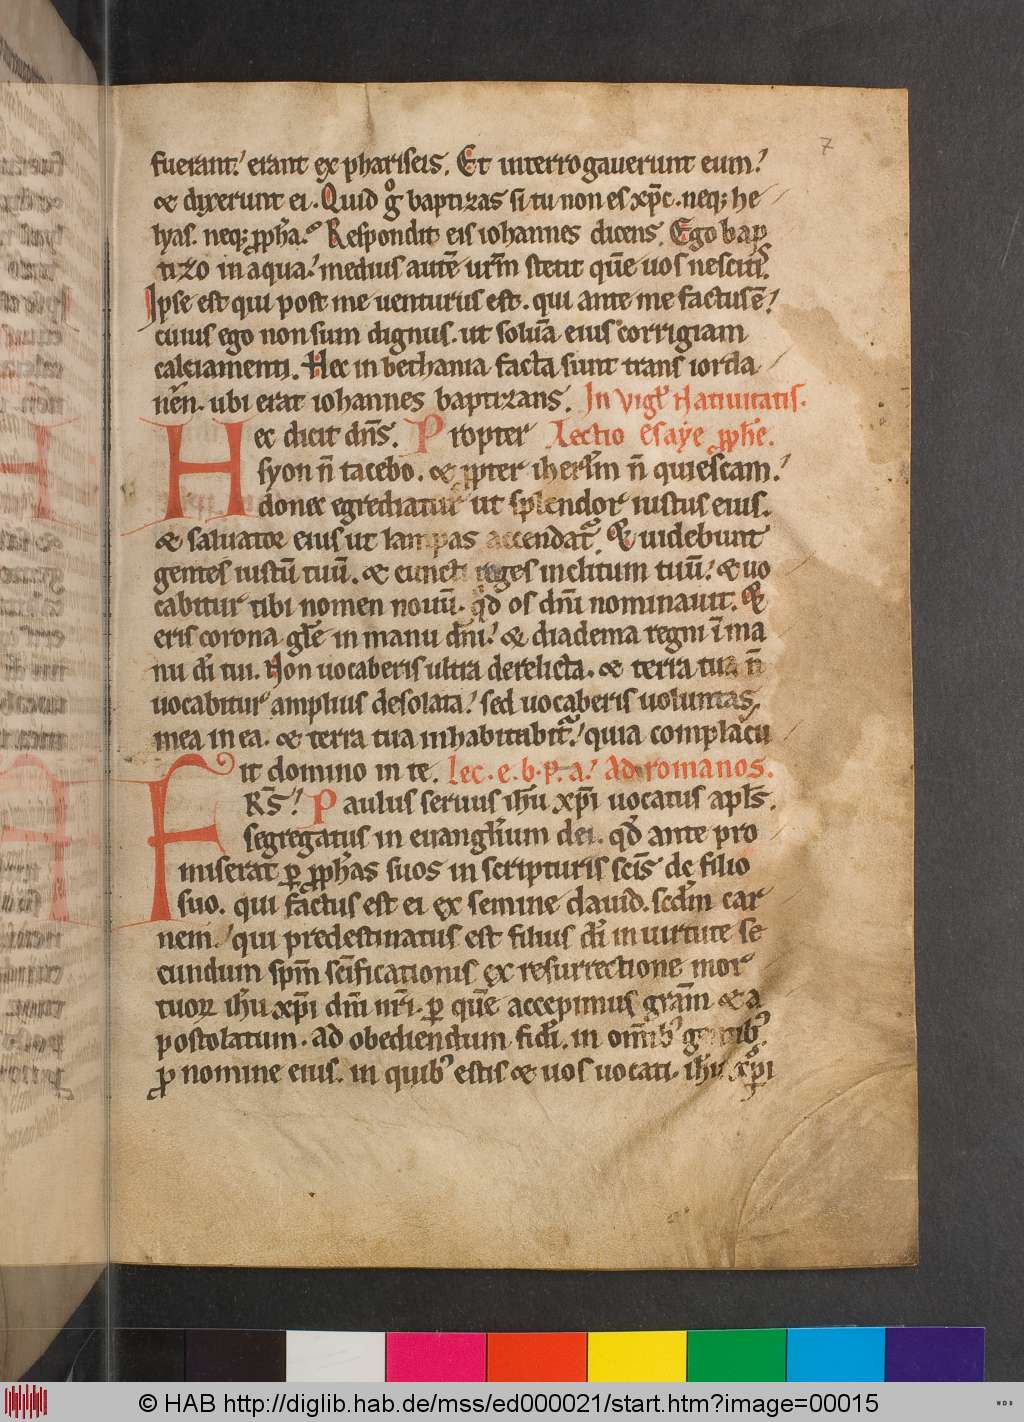 7
fuerant: erant ex phariseis. Et interrogauerunt eum:
& dixerunt ei. Quid gͦ baptizas si tu non es xp̄c. neq; he
lyas. neq; ꝓph̄a. Respondit eis iohannes dicens. Ego bap
tizo in aqua: medius autē ur̄m stetit quē uos nescitis.
Ipse est qui post me uenturus est. qui ante me factus ē:
cuius ego non sum dignus. ut soluā eius corrigiam
calciamenti. Hec in bethania facta sunt trans iorda
nēn. ubi erat iohannes baptizans. In vigł Natiuitatis.
Hec dicit dn̄s. Propter Lectio esaye ꝓphe.
syon n̄ tacebo. & ꝓpter iherłm n̄ quiescam:
donec egrediatur ut splendor iustus eius.
& saluator eius ut lampas accendatr. & uidebunt
gentes iustū tuū. & cuncti reges inclitum tuū: & uo
cabitur tibi nomen nouū. qd̄ os dn̄i nominauit. &
eris corona głe in manu dn̄i: & diadema regni ī ma
nu dī tui. Non uocaberis ultra derelicta. & terra tua n̄
uocabitur amplius desolata: sed uocaberis uoluntas
mea in ea. & terra tua inhabitabitr: quia complacu
it domino in te. Lec. e. b. p. a: Ad romanos.
FRS̄: Paulus seruus ih̄u xp̄i uocatus apłs.
segregatus in euanglium dei. qd̄ ante pro
miserat ꝑ ꝓph̄as suos in scripturis scīs de filio
suo. qui factus est ei ex semine dauid. scdm̄ car
nem: qui predestinatus est filius dī in uirtute se
cundum spm̄ scīficationis ex resurrectione mor
tuoꝝ ih̄u xp̄i dn̄i nr̄i. ꝑ quē accepimus grām & a
postolatum. ad obediendum fidī. in om̄ibꝰ gentibꝰ
ꝓ nomine eius. in quibꝰ estis & uos uocati. ih̄u xp̄i
© HAB http://diglib.hab.de/mss/ed000021/start.htm?image=00015